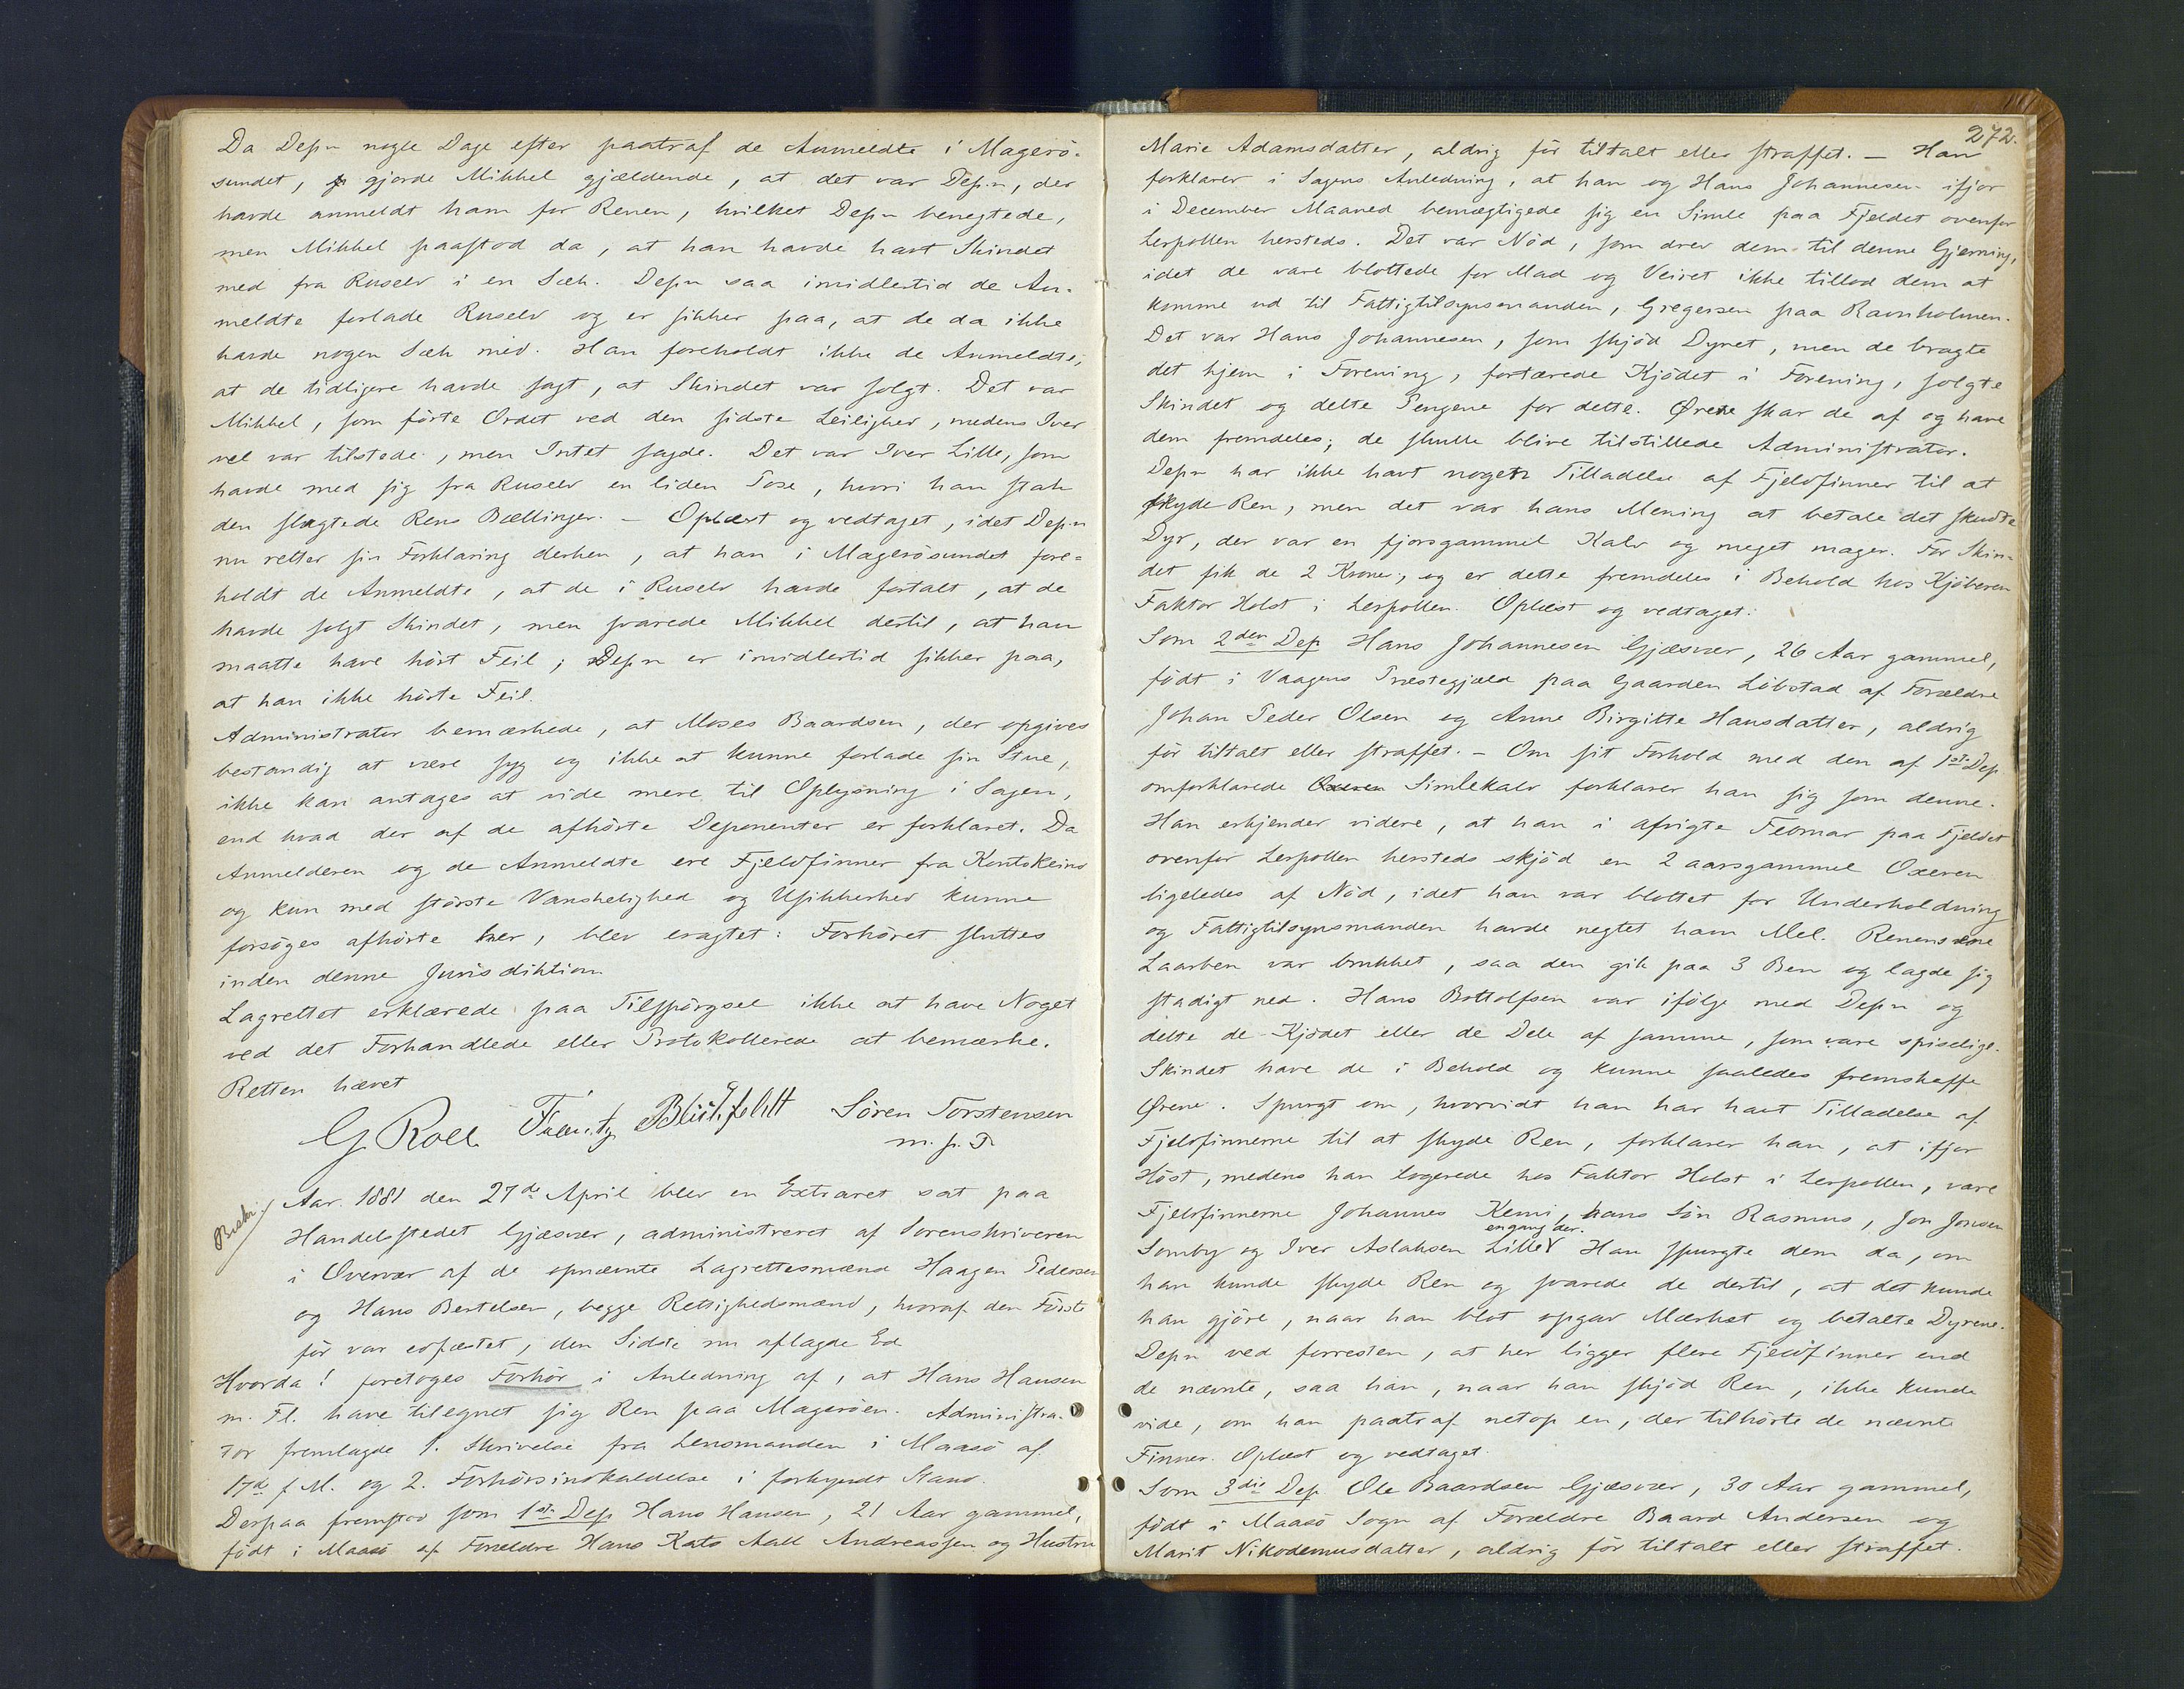 Da Depn nogle Dage efter paatraf de Anmeldte i Magerö-
sundet, gjorde Mikkel gjældende, at det var Depn, der
havde anmeldt ham for Renen, hvilket Depn benegtede,
men Mikkel paastod da, at han havde havt Skindet
med fra Ruselv i en Sæk. Depn saa imidlertid de An-
meldte forlade Ruselv og er sikker paa, at de da ikke
havde nogen Sæk med. Han foreholdt ikke de Anmeldte,
at de tidligere havde sagt, at Skindet var solgt. Det var
Mikkel, som förte Ordet ved den sidste Leilighed, medens Iver
vel var tilstede, men Intet sagde. Det var Iver Lille, som
havde med sig fra Ruselv en liden Pose, hvori han stak
den slagtede Rens Bællinger. – Oplæst og vedtaget, idet Depn
nu retter sin Forklaring derhen, at han i Magerösundet fore-
holdt de Anmeldte, at de i Ruselv havde fortalt, at de
havde solgt Skindet, men svarede Mikkel dertil, at han
maatte have hört Feil; Depn er imidlertid sikker paa,
at han ikke hörte Feil.
Administrator bemærkede, at Moses Baardsen, der opgives
bestandig at være syg og ikke at kunne forlade sin Stue,
ikke kan antages at vide mere til Oplysning i Sagen,
end hvad der af de afhörte Deponenter er forklaret. Da
Anmelderen og de Anmeldte ere Fjeldfinner fra Kontokeino
og kun med störste Vanskelighed og Usikkerhed kunne
forsöges afhörte her, blev eragtet: Forhöret sluttes
inden denne Jurisdiktion
Lagrettet erklærede paa Tilspörgsel ikke at have Noget
ved det Forhandlede eller Protokollerede at bemærke.
Retten hævet
G Roll Blüchfeldt Sören Torstensen
m. p. P
Beskr.
Aar 1881 den 27de April blev en Extraret sat paa
Handelsstedet Gjæsvær, administreret af Sorenskriveren
i Overvær af de opnævnte Lagrettesmænd Haagen Pedersen
og Hans Bertelsen, begge Rettighedsmænd, hvoraf den Förste
för var edfæstet, den Sidste nu aflagde Ed
Hvorda! foretoges Forhör i Anledning af, at Hans Hansen
m. Fl. have tilegnet sig Ren paa Magerøen. Administra-
tor fremlagde 1. Skrivelse fra Lensmanden i Maasö af
17de f M. og 2. Forhörsindkaldelse i forkyndt Stand.
Derpaa fremstod som 1ste Dep Hans Hansen, 21 Aar gammel,
födt i Maasö af Forældre Hans Kato Aall Andreassen og Hustru
272.
Marie Adamsdatter, aldrig för tiltalt eller straffet. – Han
forklarer i Sagens Anledning, at han og Hans Johannesen ifjor
i December Maaned bemægtigede sig en Simle paa Fjeldet ovenfor
Lerpollen hersteds. Det var Nöd, som drev dem til denne Gjerning,
idet de vare blottede for Mad og Veiret ikke tillod dem at
komme ud til Fattigtilsynsmanden, Gregersen paa Ravnholmen.
Det var Hans Johannesen, som skjöd Dyret, men de bragte
det hjem i Forening, fortærede Kjödet i Forening, solgte
Skindet og delte Pengene for dette. Ørene skar de af og have
dem fremdeles; de skulle blive tilstillede Administrator.
Depn har ikke havt nogen Tilladelse af Fjeldfinner til at
skyde Ren, men det var hans Mening at betale det skudte
Dyr, der var en fjorsgammel Kalv og meget mager. For Skin-
det fik de 2 Kroner, og er dette fremdeles i Behold hos Kjöberen
Faktor Holst i Lerpollen. Oplæst og vedtaget.
Som 2den Dep Hans Johannesen Gjæsvær, 26 Aar gammel,
födt i Vaagens Præstegjæld paa Gaarden Löbstad af Forældre
Johan Peder Olsen og Anne Birgitte Hansdatter, aldrig
för tiltalt eller straffet. – Om sit Forhold med den af 1ste Dep
omforklarede Oxeren Simlekalv forklarer han sig som denne.
Han erkjender videre, at han i afvigte Februar paa Fjeldet
ovenfor Lerpollen hersteds skjöd en 2 aarsgammel Oxeren
ligeledes af Nöd, idet han var blottet for Underholdning
og Fattigtilsynsmanden havde negtet ham Mel. Renens ene
Laarben var brukket, saa den gik paa 3 Ben og lagde sig
stadigt ned. Hans Bottolfsen var ifölge med Depn og
delte de Kjödet eller de Dele af samme, som vare spiselige.
Skindet have de i Behold og kunne saaledes fremskaffe
Ørene. Spurgt om, hvorvidt han har havt Tilladelse af
Fjeldfinnerne til at skyde Ren, forklarer han, at ifjor
Höst, medens han logerede hos Faktor Holst i Lerpollen, vare
Fjeldfinnerne Johannes Kemi, hans Sön Rasmus, Jon Jonsen
engang der.
Somby og Iver Aslaksen Lille Han spurgte dem da, om
han kunde skyde Ren og svarede de dertil, at det kunde
han gjöre, naar han blot opgav Mærket og betalte Dyrene.
Depn ved forresten, at her ligger flere Fjeldfinner end
de nævnte, saa han, naar han skjöd Ren, ikke kunde
vide, om han paatraf netop en, der tilhörte de nævnte
Finner. Oplæst og vedtaget.
Som 3die Dep Ole Baardsen Gjæsvær, 30 Aar gammel,
födt i Maasö Sogn af Forældre Baard Andersen og
Marit Nikodemusdatter, aldrig för tiltalt eller straffet.